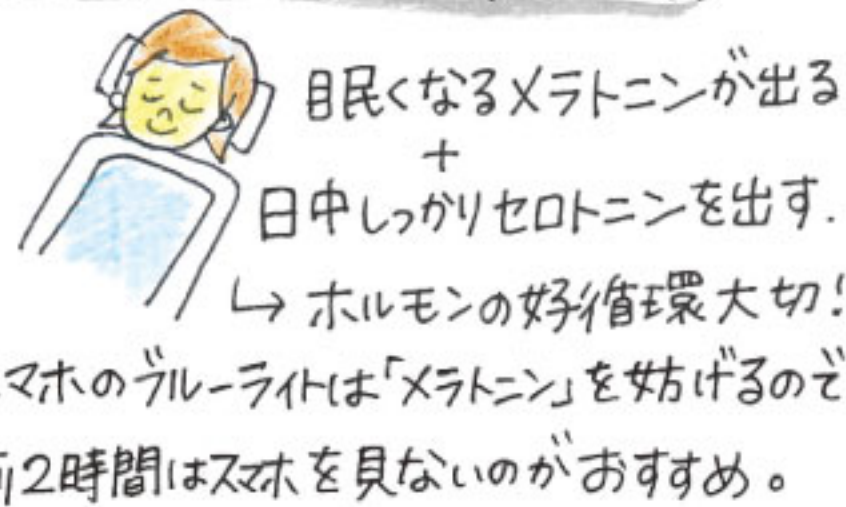 眠くなるメラトニンが出る
+
日中しっかりセロトニンを出す.
↳ ホルモンの好循環大切!
マホのブルーライトは「メラトニン」を妨げるので
前2時間はスマホを見ないのがおすすめ。